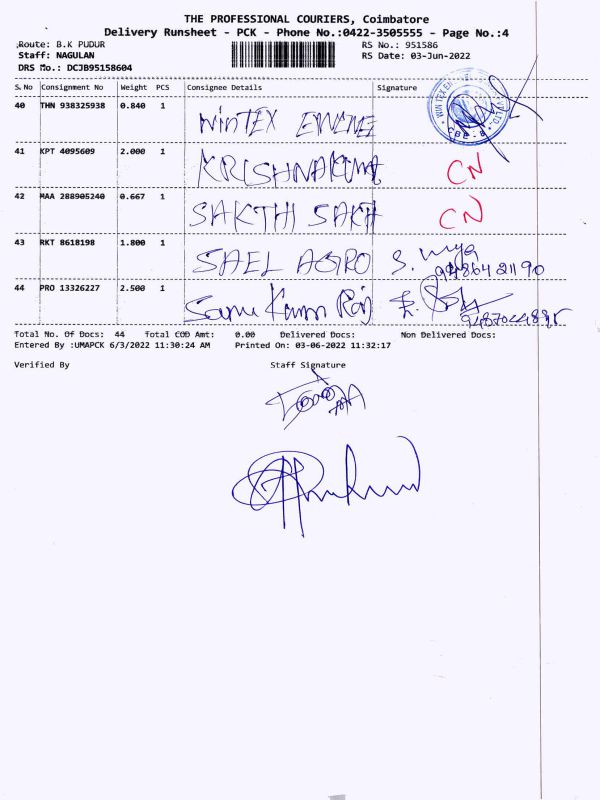 THE PROFESSIONAL COURIERS, Coimbatore
Delivery Runsheet - PCK - Phone No.:0422-3505555 - Page No.:4
Route: B.K PUDUR
RS No.: 951586
Staff: NAGULAN
RS Date: 03-Jun-2022
DRS No.: DCJB95158604
S.No Consignment No Weight PCS Consignee Details Signature
40 THN 938325938 0.840 1 WINTEX
41 KPT 4095609 2.000 1 KRISHNAKUMA CN
42 MAA 288905240 0.667 1 SAKTHI SAKH CN
43 RKT 8618198 1.800 1 SAEL AGRO S.
44 PRO 13326227 2.500 1 Raj
Total No. Of Docs: 44 Total COD Amt: 0.00 Delivered Docs: Non Delivered Docs:
Entered By :UMAPCK 6/3/2022 11:30:24 AM Printed On: 03-06-2022 11:32:17
Verified By Staff Signature